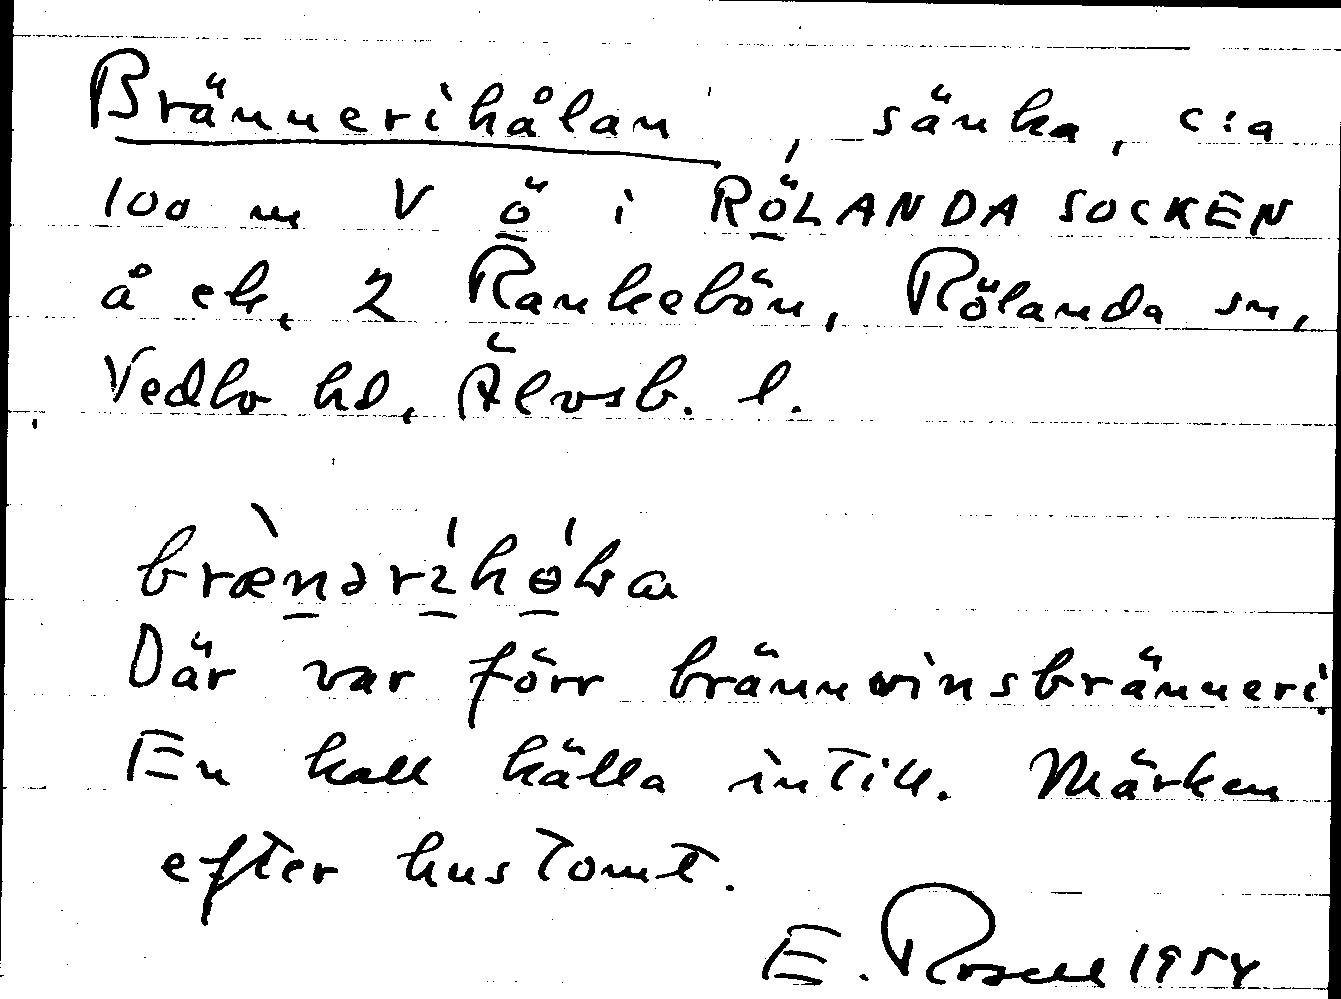 Brännerihålan, sänka, c:a
100 m V ö i RÖLANDA SOCKEN
å ek. 2 Rankebön, Rölanda sn,
Vedbo hd, Älvsb. l.
bræ̀nəríhɵ́lʋa
Där var förr brännvinsbränneri.
En kall källa intill. Märken
efter hustomt.
E. Rosell 1954